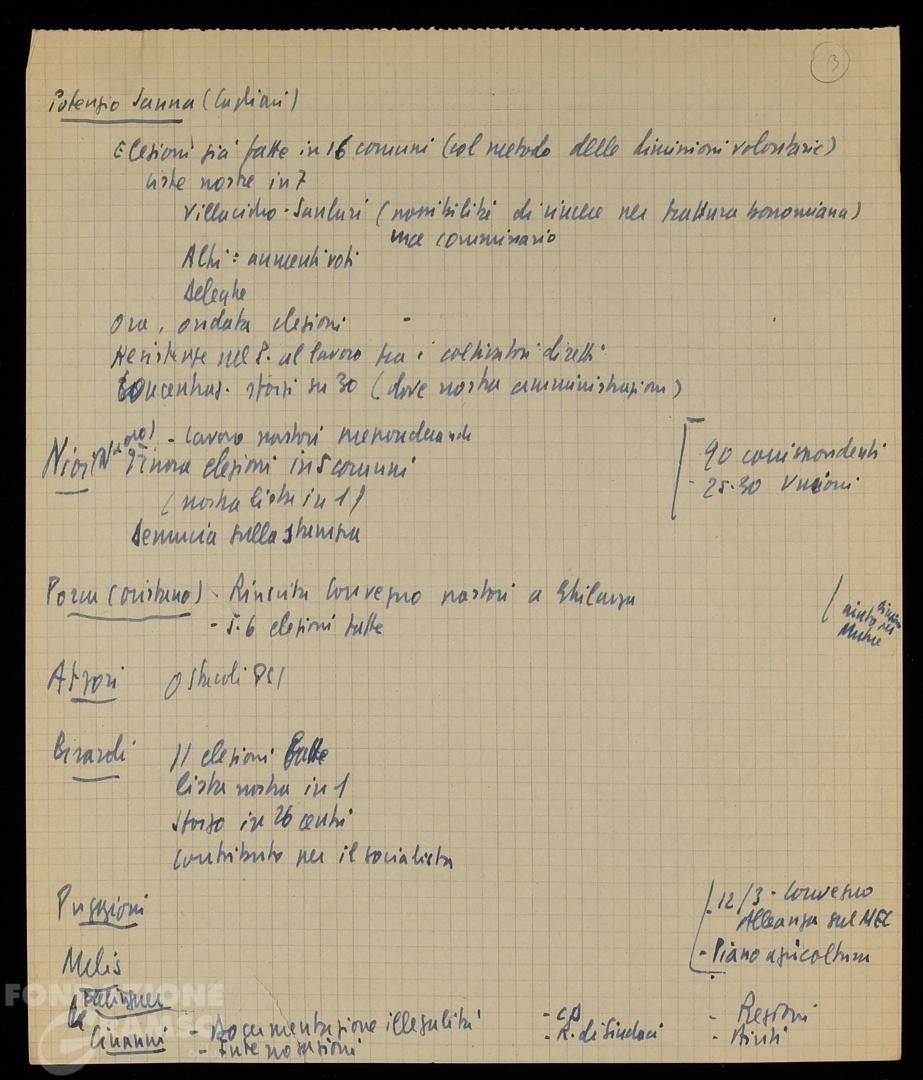 3
Potenzio Sanna (Cagliari)
Elezioni già fatte in 16 comuni (col metodo delle dimissioni volontarie)
Liste nostre in 7
Villacidro - Sanluri (possibilità di vincere per frattura bonomiana)
ma commissario
Altri: aumenti voti
Deleghe
Ora, ondata elezioni
Resistenze nel P. al lavoro tra i coltivatori diretti
Concentraz. sforzi su 30 (dove nostra amministrazioni)
Nioi (Nuoro) - Lavoro pastori
Finora elezioni in 5 comuni
(nostra lista in 1)
Denuncia sulla stampa
90 corrispondenti
- 25-30 riunioni
Porcu (Oristano) - Riuscito Convegno pastori a Ghilarza
- 5-6 elezioni fatte
aiuto per Mutue
Atzori Ostacoli PSI
Birardi 11 elezioni fatte
Lista nostra in 1
Sforzo in 26 centri
Contributo per il socialista
Puggioni
- 12/3 - Convegno
Alleanza sul MEC
- Piano agricoltura
Melis
FONDAZIONE GRAMSCI
Berlinguer
Cinanni - Documentazione illegalità
- Interrogazioni
- CD
- R. di Sindaci
- Regioni
- Aiuti